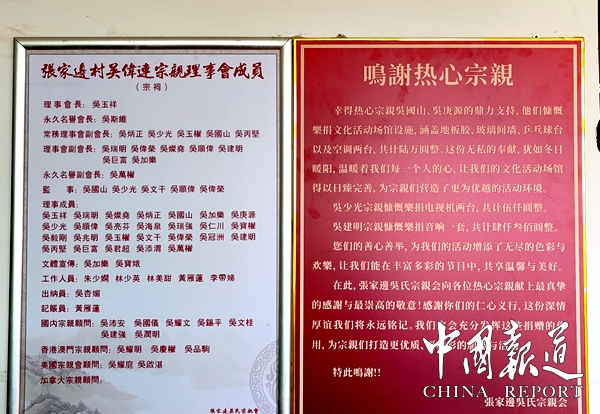 張家邊村吳偉連宗親理事會成員
(宗祠)
理事會長: 吳玉祥
永久名譽會長: 吳斯維
常務理事會副會長: 吳炳正 吳少光 吳玉權 吳國山 吳丙堅
理事會副會長: 吳瑞明 吳偉榮 吳燦堯 吳順偉 吳建明
吳巨富 吳加樂
永久名譽副會長: 吳萬權
監 事: 吳國山 吳少光 吳文干 吳順偉 吳偉榮
理事成員:
吳玉祥 吳瑞明 吳燦堯 吳炳正 吳國山 吳加樂 吳庚源
吳少光 吳順偉 吳亮芬 吳海泉 吳瑞強 吳仁川 吳寶權
吳毅剛 吳兆明 吳玉權 吳文干 吳偉榮 吳冠洲 吳建明
吳丙堅 吳巨富 吳君超 吳添渭 吳萬權
文體宣傳: 吳加樂 吳寶娥
工作人員: 朱少嫻 林少英 林美甜 黃雁蓮 李帶娣
出納員: 吳杏媚
記賬員: 黃雁蓮
國内宗親顧問: 吳沛安 吳國儀 吳耀文 吳錫平 吳文桂
吳建強 吳潤明
香港澳門宗親顧問: 吳耀明 吳慶權 吳品駒
美國宗親會顧問: 吳耀庭 吳啟湛
加拿大宗親顧問:
張家邊吳氏宗親會
鳴謝热心宗親
幸得热心宗親吳國山、吳庚源的鼎力支持,他们慷慨
樂捐文化活动场馆设施,涵盖地板胶、玻璃间墙、乒乓球台
以及空调两台,共计陆万圆整。这份无私的奉献,犹如冬日
暖阳,温暖着我们每一个人的心,让我们的文化活动场馆
得以日臻完善,为宗親们营造了更为优越的活动环境。
吳少光宗親慷慨樂捐电视机两台,共计伍仟圆整。
吳建明宗親慷慨樂捐音响一套,共计肆仟叁佰圆整。
您们的善心善举,为我们的活动增添了无尽的色彩与
欢樂,让我们能在丰富多彩的节目中,共享温馨与美好。
在此,張家邊吳氏宗親会向各位热心宗親献上最真挚
的感谢与最崇高的敬意!感谢你们的仁心义行,这份深情
厚谊我们将永远铭记。我们会充分发挥这些捐赠的
用,为宗親们打造更优质、彩的活
特此鳴謝!!
張家邊吳氏宗親会
中國報道
CHINA REPORT